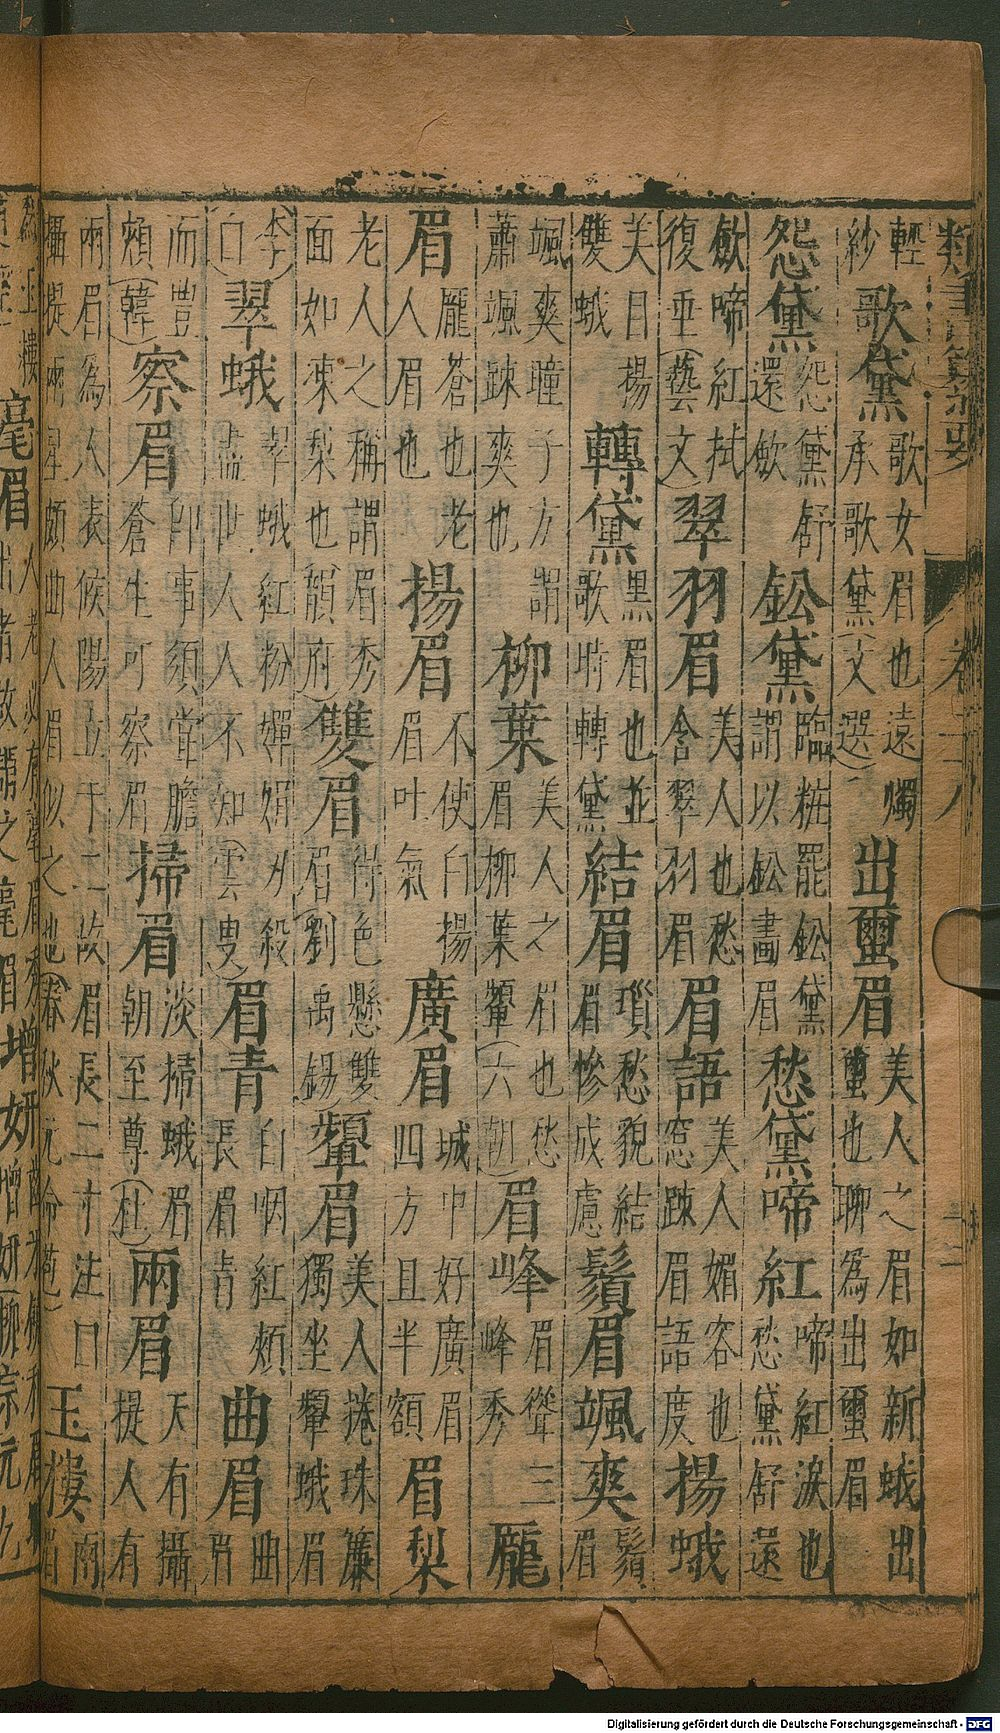 類書纂要 卷十八
輕紗歌黛歌女眉也遠燭承歌黛(文選)出蠒眉美人之眉如新蛾出蠒也聊為出蠒眉
怨黛怨黛舒還歛鈆黛臨粧罷鈆黛謂以鈆畫眉愁黛啼紅啼紅淚也愁黛舒還
歛啼紅拭復垂(藝文)翠羽眉美人也愁含翠羽眉眉語美人媚容也窓踈眉語度揚蛾
美目揚雙蛾轉黛黑眉也並歌時轉黛結眉瑣愁貌結眉慘成慮鬚眉颯爽鬚眉
颯爽瞳子方謂蕭颯踈爽也柳葉美人之眉也愁眉柳葉顰(六朝)眉峰眉聳三峰秀龎
眉龎蒼也老人眉也揚眉不使白揚眉吐氣廣眉城中好廣眉四方且半額眉梨
老人之稱謂眉秀面如凍梨也(韻府)雙眉得色懸雙眉(劉禹錫)顰眉美人捲珠簾獨坐顰蛾眉
(李白)翠蛾翠蛾紅粉嬋娟刄殺盡世人人不知(雲叟)眉青白烟紅頰長眉青曲眉曲眉
而豊頰(韓)察眉印事須當膽蒼生可察眉掃眉淡掃蛾眉朝至尊(杜)兩眉天有攝提人有
兩眉為人表候陽立于二故眉長二寸注曰攝提兩星頗曲人眉似之也(春秋元命苞)玉樓兩眉
Digitalisierung gefördert durch die Deutsche Forschungsgemeinschaft - DFG